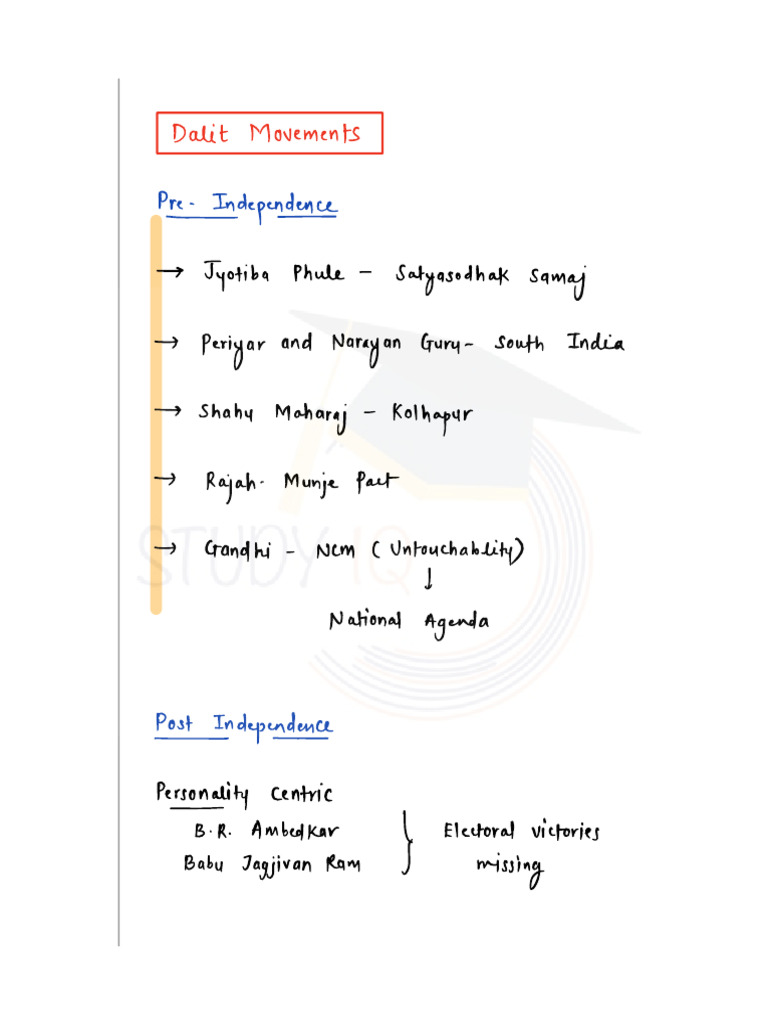 Dalit Movements
Pre- Independence
→ Jyotiba Phule - Satyasodhak Samaj
→ Periyar and Narayan Guru- South India
→ Shahu Maharaj - Kolhapur
→ Rajah- Munje Pact
→ Gandhi - NCM (Untouchablity)
↓
National Agenda
STUDY IQ
Post Independence
Personality Centric
B.R. Ambedkar } Electoral victories
Babu Jagjivan Ram missing